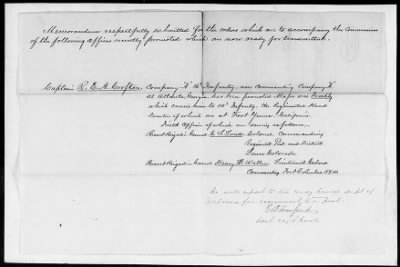 Memorandum respectfully submitted for the orders which are to accompany the Commissions
of the following officers recently promoted which are now ready for transmittal.
Captain R. E. A. Crofton, Company "A" 16" Infantry, now commanding Company "A"
at Atlanta Georgia has been promoted Major vice
which carries him to 14" Infantry, the Regimental Head
Quarters of which are at Fort Yuma, California
Field Officers of which are serving as follows,
Brevet Brigadier General Colonel Commanding
Regiment Post and District
Tucson
Brevet Brigadier General Henry D. Wallen Lieutenant Colonel
Commanding Fort Columbus N.Y.H.
He will report to the Comdg General Dept of
California for assignment to a post.
E D Townsend